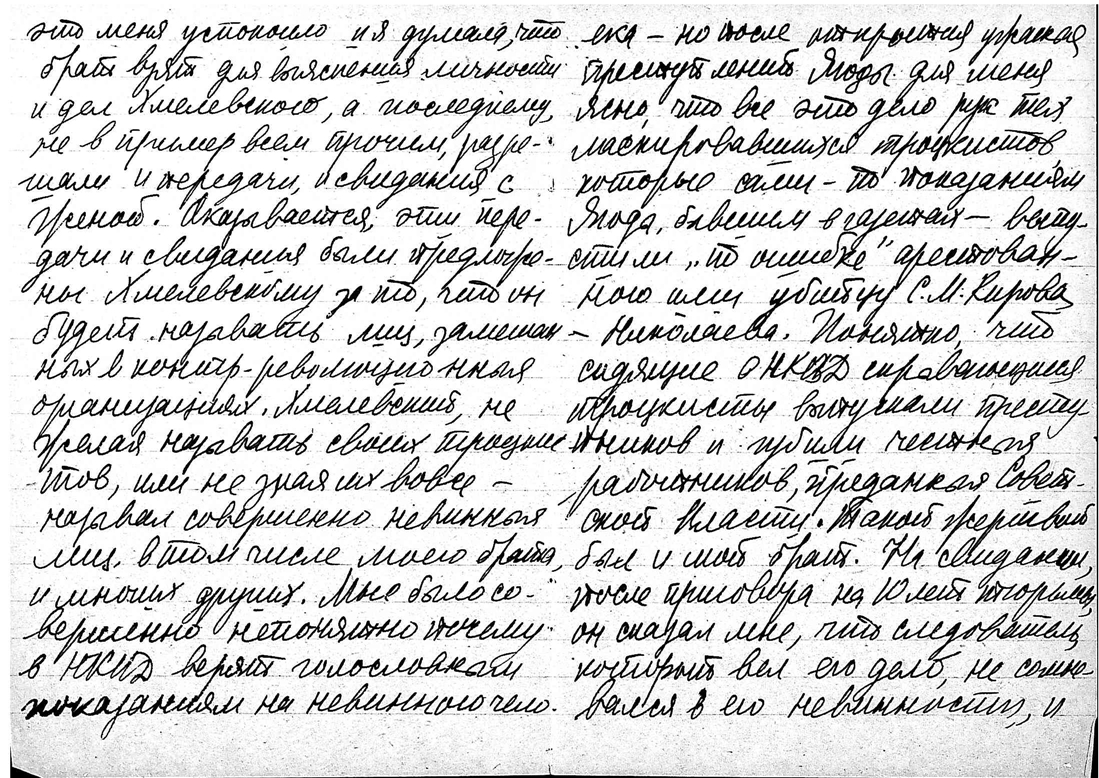 это меня успокоило и я думала, что
брат взят для выяснения личности
и дел Хмелевского, а последнему,
не в пример всем прочим, разре-
шали и передачи, и свидания с
женой. Оказывается, эти пере-
дачи и свидания были предложе-
ны Хмелевскому за то, что он
будет называть лиц, замешан
ных в контр-революционных
организациях. Хмелевский, не
желая назвать своих троцкис
тов, или не зная их вовсе –
назвал совершенно невинных
лиц, в том числе моего брата,
и многих других. Мне было со-
вершенно непонятно почему
в НКВД верят голословным
показаниям на невинного чело-
века – но после открытия ужасных
преступлений Ягоды для меня
ясно, что все это дело рук тех
маскировавшихся троцкистов,
которые сами – по показаниям
Ягода, бывшим в газетах – выпу-
стили „по ошибке" арестован-
ного ими убийцу С.М. Кирова
– Николаева. Понятно, что
сидящие в НКВД скрывающиеся
троцкисты выпускали престу-
пников и губили честных
работников, преданных Совет-
ской Власти. Такой жертвой
был и мой брат. На свидании,
после приговора на 10 лет тюрьмы,
он сказал мне, что следователь,
который вел его дело, не сомне-
вался в его невинности, и